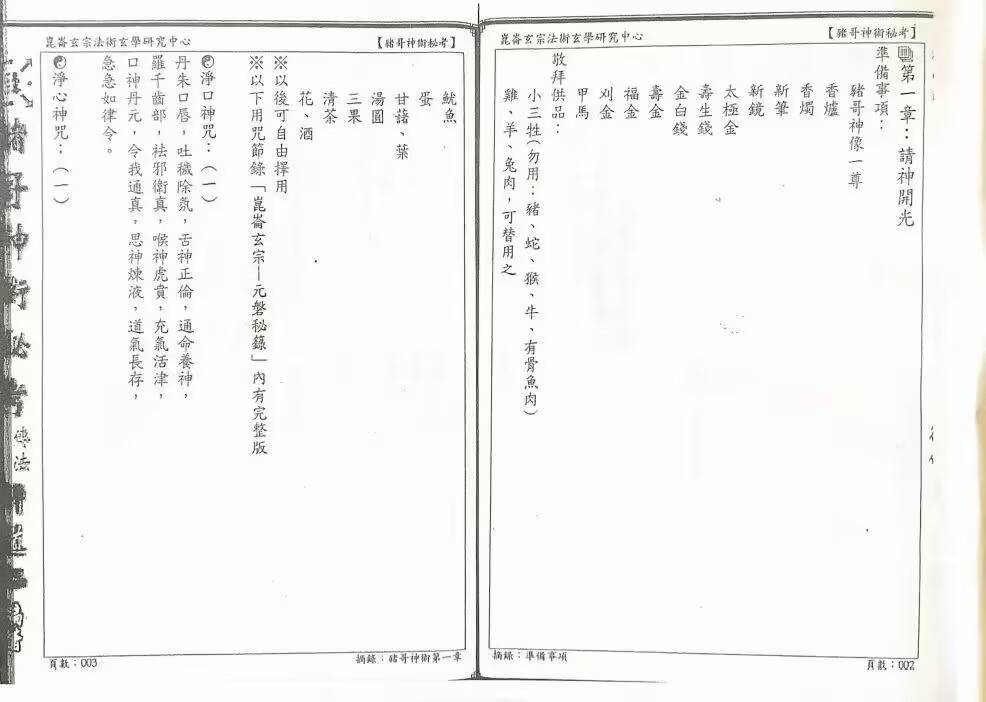 【豬哥神術秘考】
崑崙玄宗法術玄學研究中心
第一章：請神開光
準備事項：
豬哥神像一尊
香爐
香燭
新筆
新鏡
太極金
壽生錢
金白錢
壽金
福金
刈金
甲馬
敬拜供品：
小三牲（勿用：豬、蛇、猴、牛、有骨魚肉）
雞、羊、兔肉，可替用之
摘錄：準備事項
頁數：002
【豬哥神術秘考】
崑崙玄宗法術玄學研究中心
魷魚
蛋
甘藷、葉
湯圓
三果
清茶
花、酒
※以後可自由擇用
※以下用咒節錄「崑崙玄宗—元磐秘錄」內有完整版
淨口神咒：（一）
丹朱口唇，吐穢除氛，舌神正倫，通命養神，
羅千齒部，祛邪衛真，喉神虎賁，充氣活津，
口神丹元，令我通真，思神煉液，道氣長存，
急急如律令。
淨心神咒：（一）
摘錄：豬哥神術第一章
頁數：003